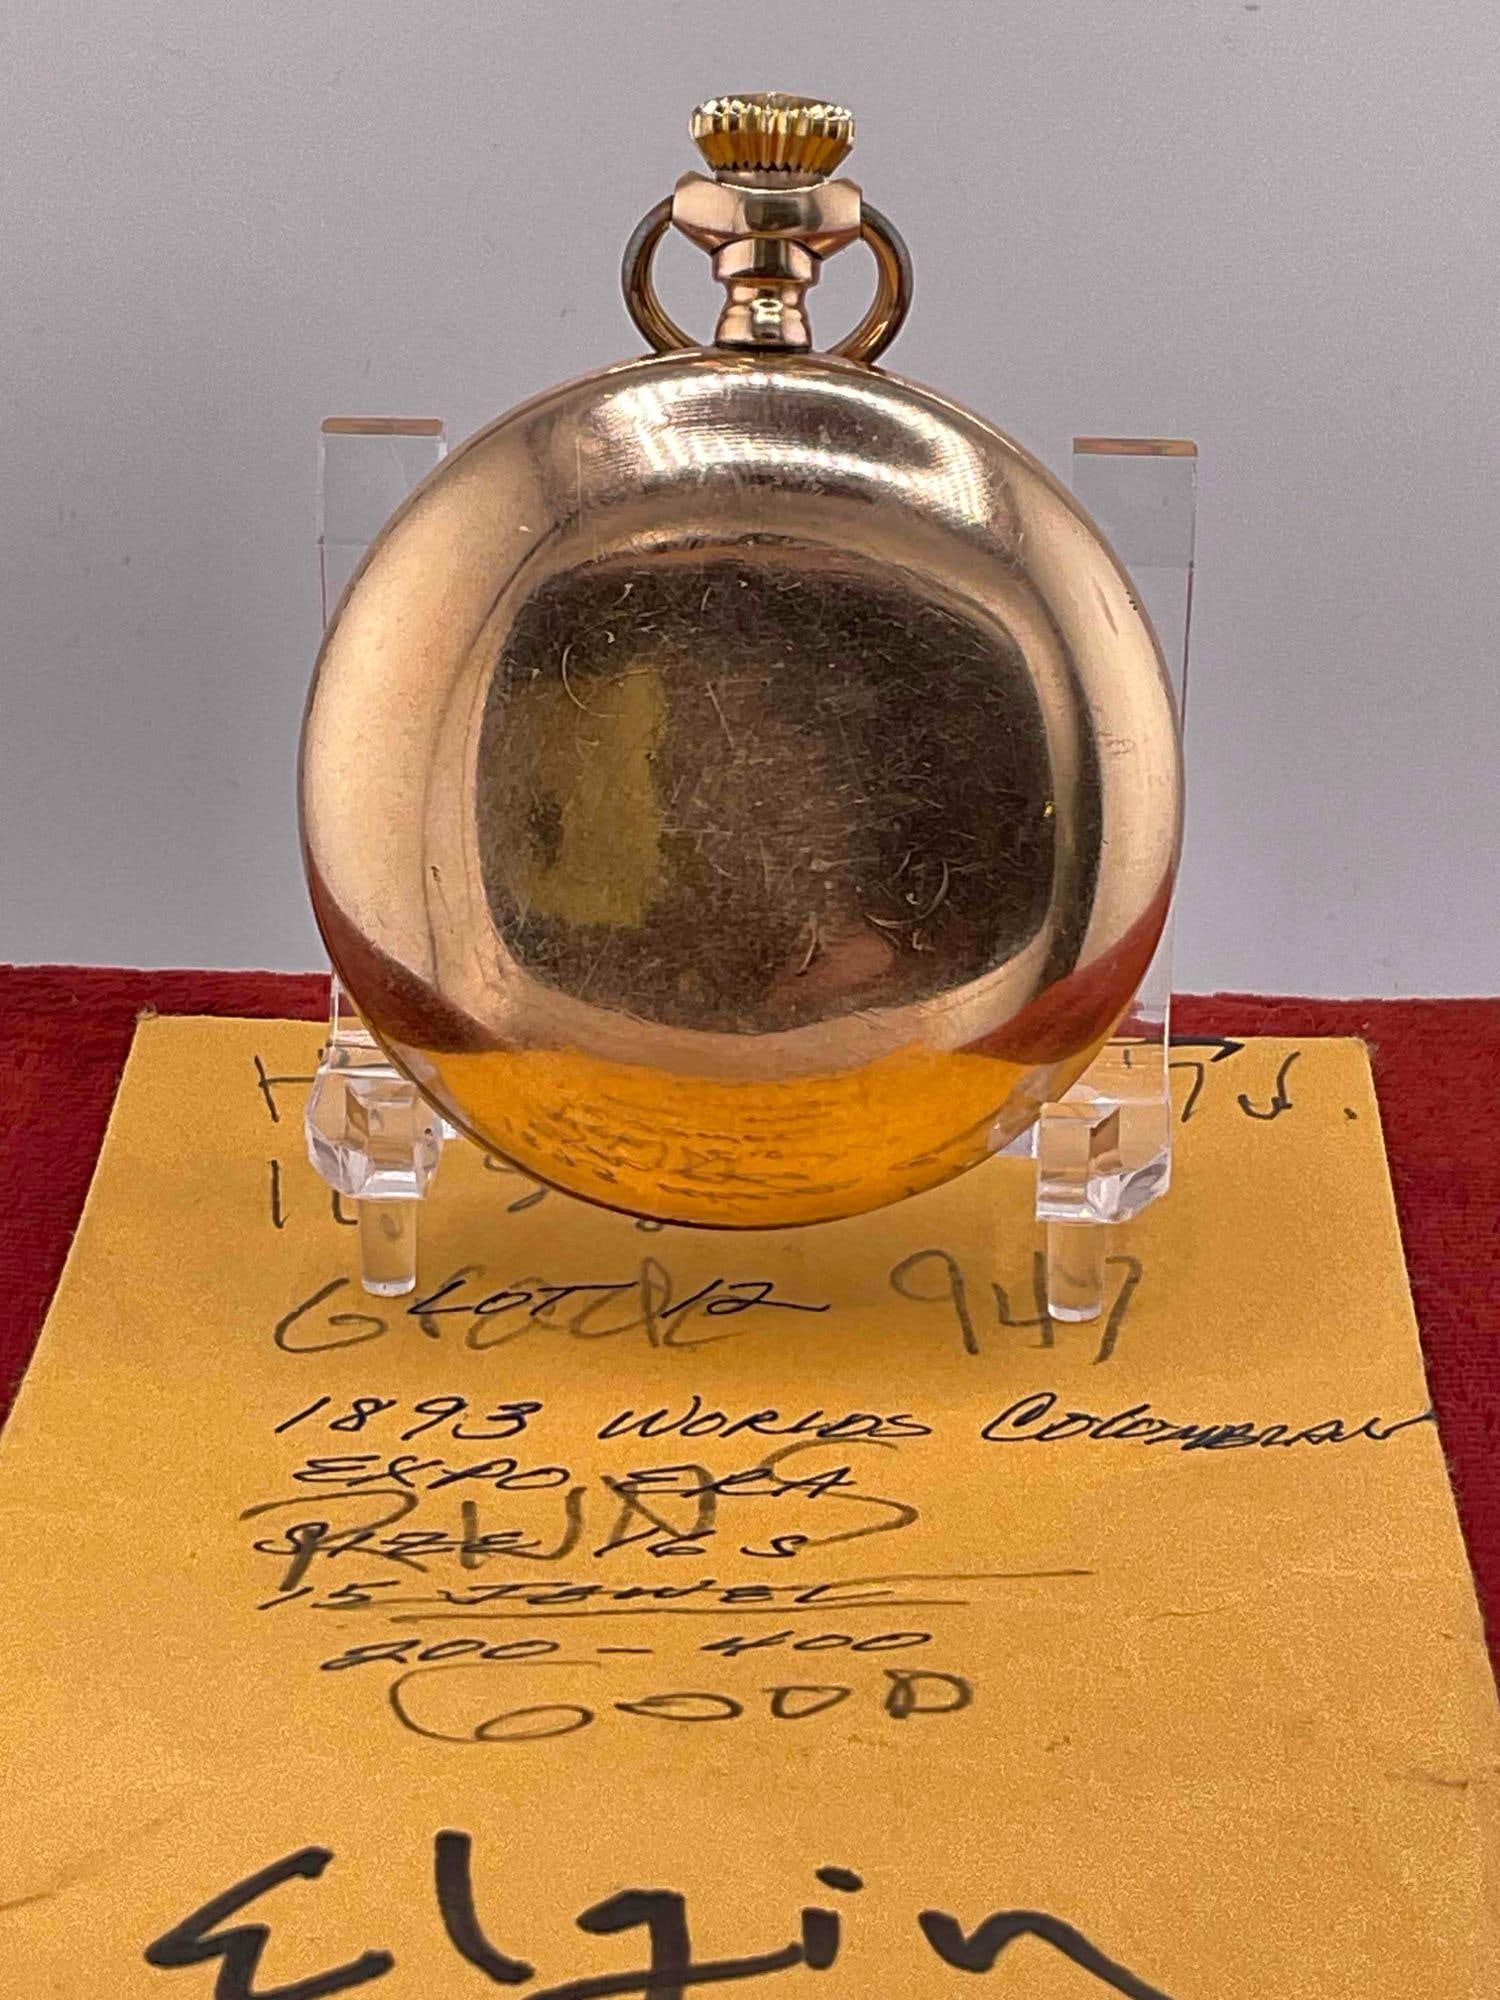 Grade 947
LOT 12
1893 WORLDS COLOMBIAN
EXPO ERA
RUNS
SIZE 16 S
15 JEWEL
200 - 400
GOOD
Elgin